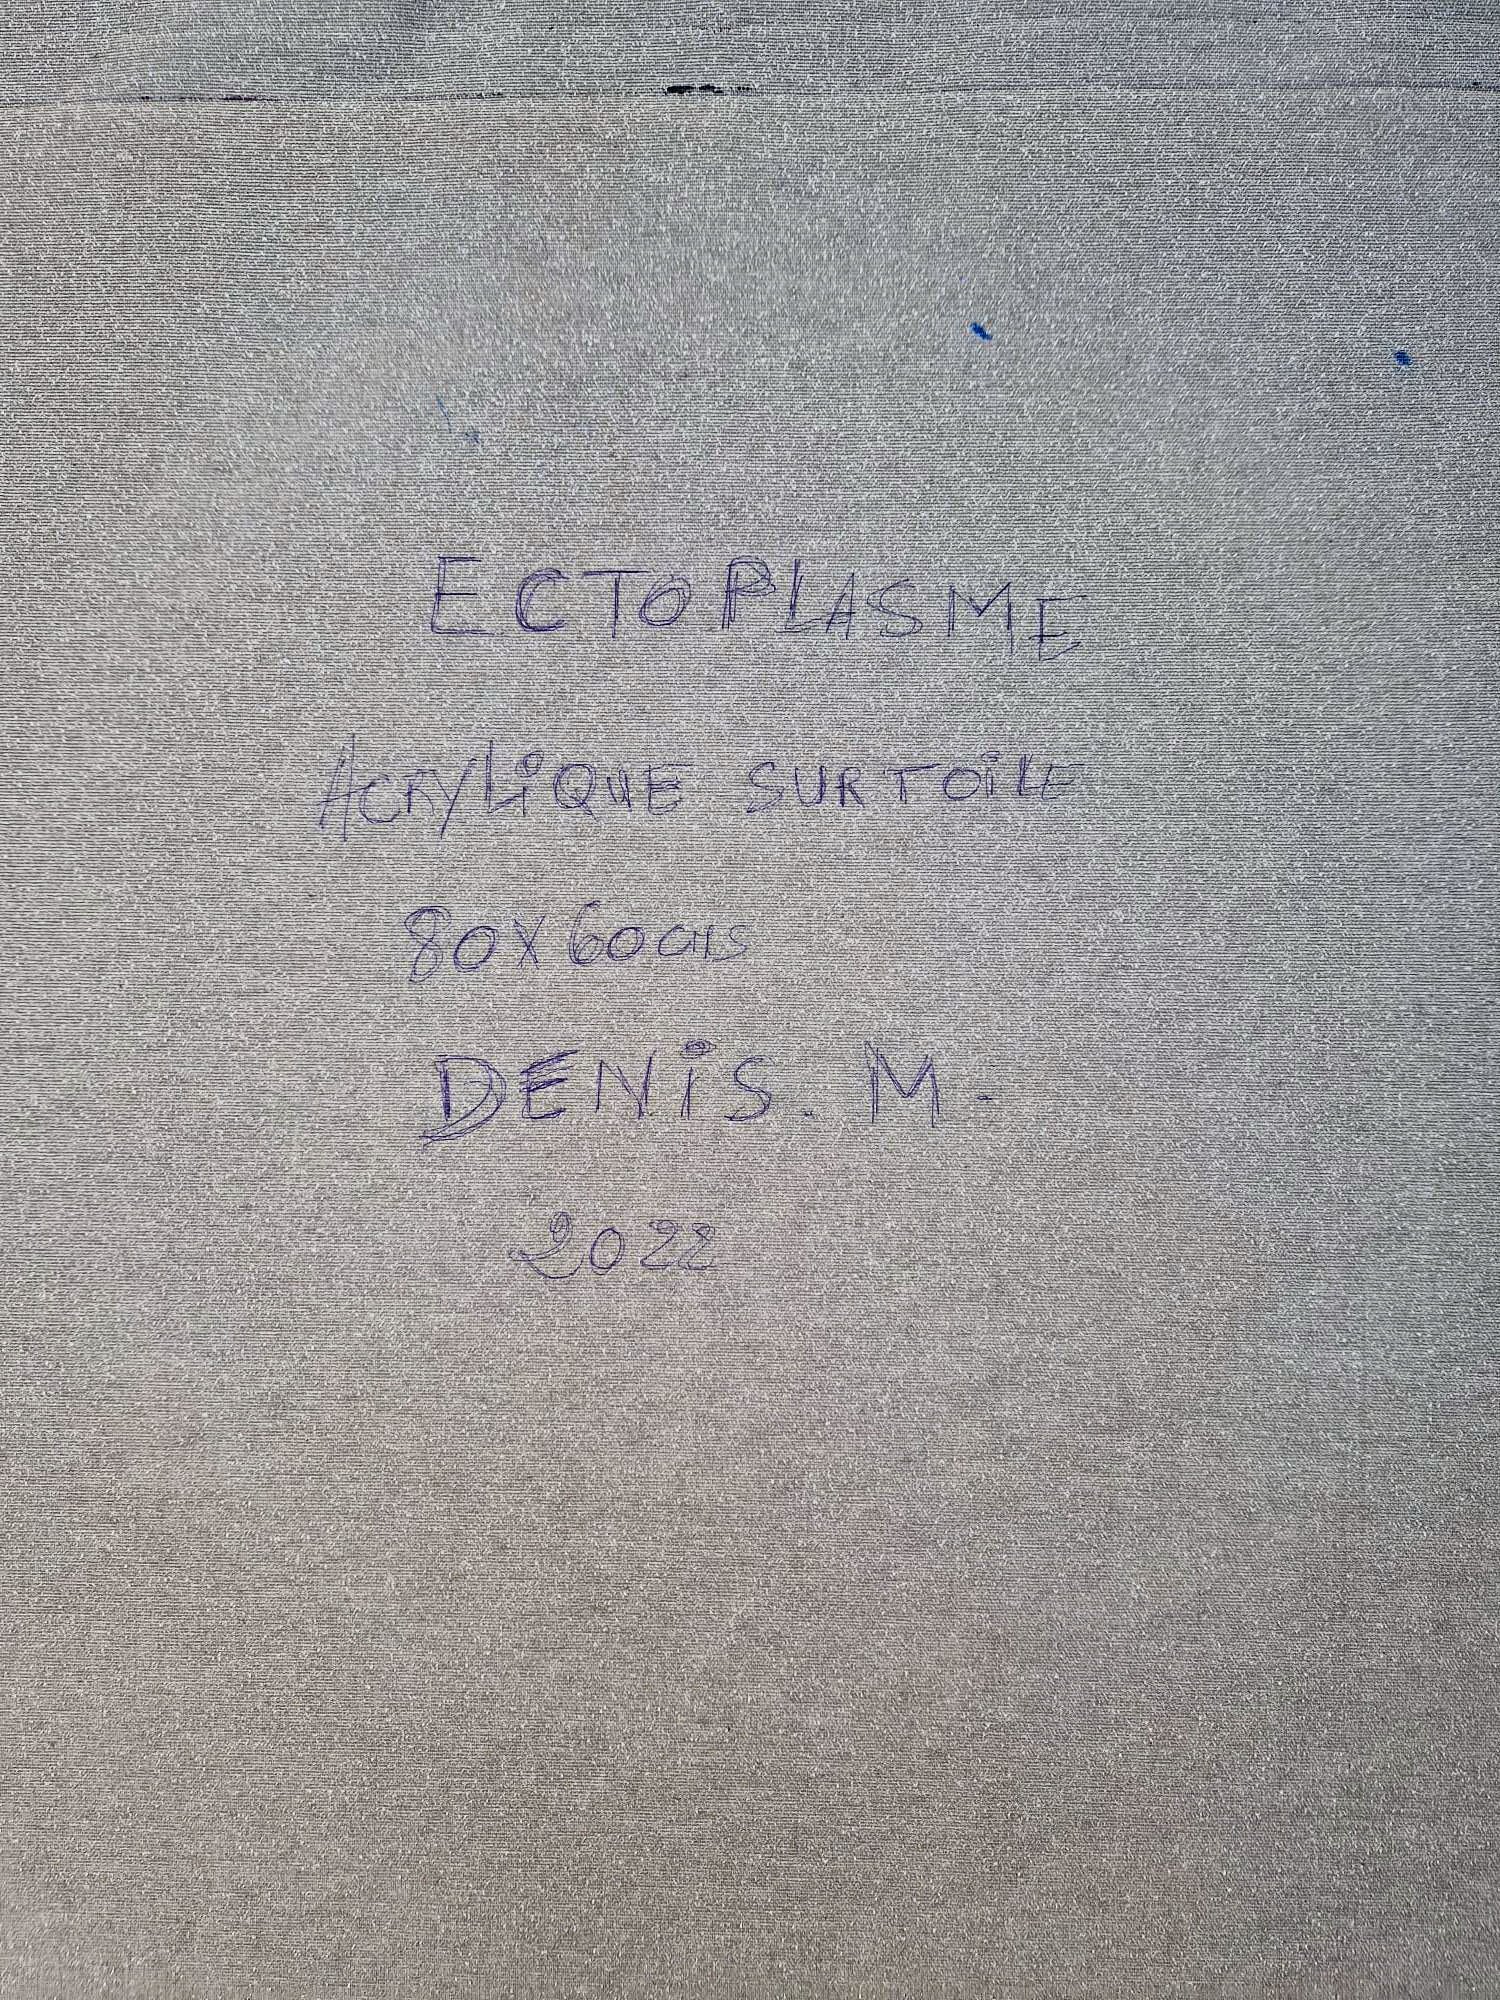 ECTOPLASME
ACRYLiQUE SUR TOiLE
80X60CMS
DENiS. M.
2022